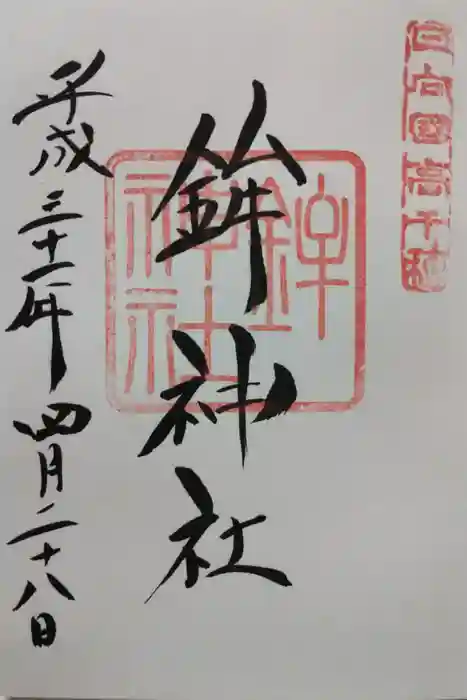 日向國高千穂
鉾神社
鉾神社
平成三十一年四月二十八日